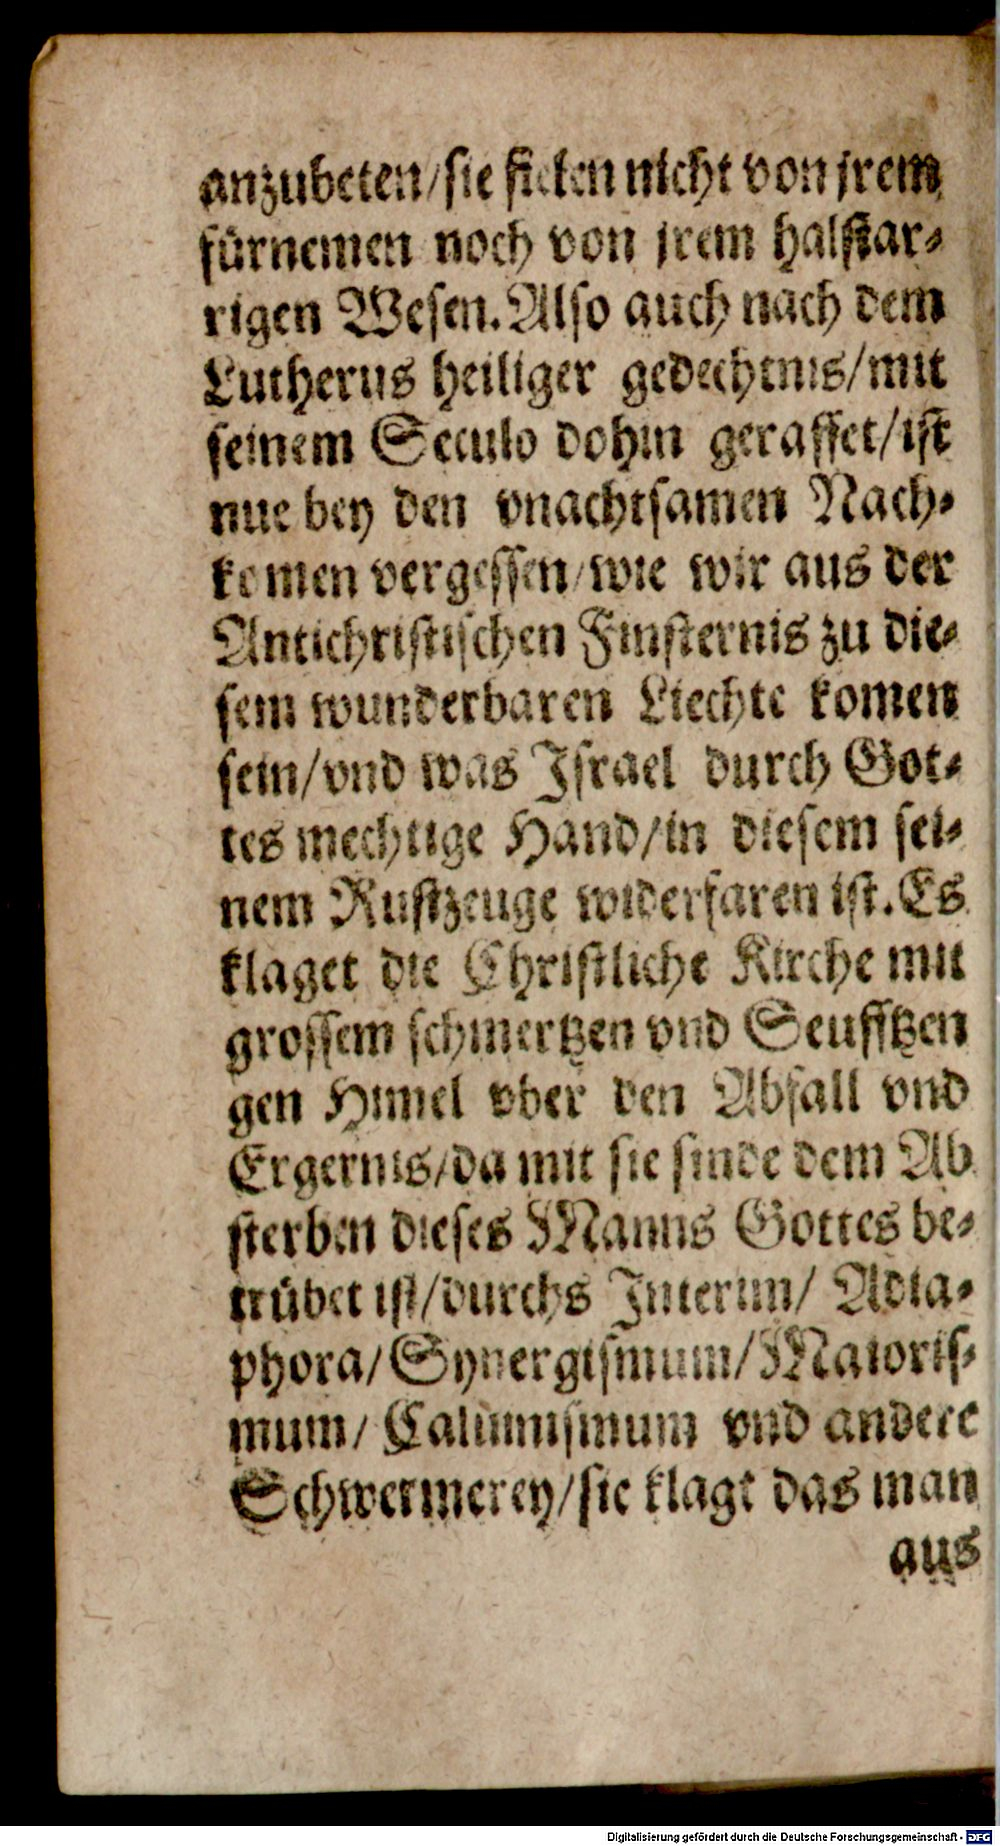 anzubeten/sie fielen nicht von jrem
fürnemen noch von jrem halſtar⸗
rigen Weſen. Alſo auch nach dem
Lutherus heiliger gedechtnis/mit
ſeinem Seculo dohin geraffet/iſt
nue bey den vnachtſamen Nach⸗
komen vergeſſen/wie wir aus der
Antichriſtiſchen Finſternis zu die⸗
ſem wunderbaren Liechte komen
ſein/vnd was Iſrael durch Got⸗
tes mechtige Hand/in dieſem ſei⸗
nem Ruſtzeuge widerfaren iſt. Es
klaget die Chriſtliche Kirche mit
groſſem ſchmertzen vnd Seufftzen
gen Himel vber den Abfall vnd
Ergernis/da mit ſie ſinde dem Ab
ſterben dieſes Manns Gottes be⸗
trübet iſt/durchs Interim/ Adia⸗
phora/Synergiſmum/Maioriſ⸗
mum/ Caluiniſmum vnd andere
Schwermerey/ſie klagt das man
aus
Digitalisierung gefördert durch die Deutsche Forschungsgemeinschaft - DFG